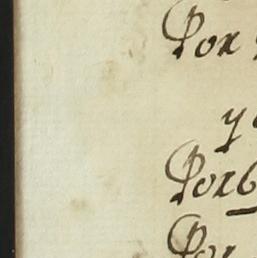 Por
y
Por
Por